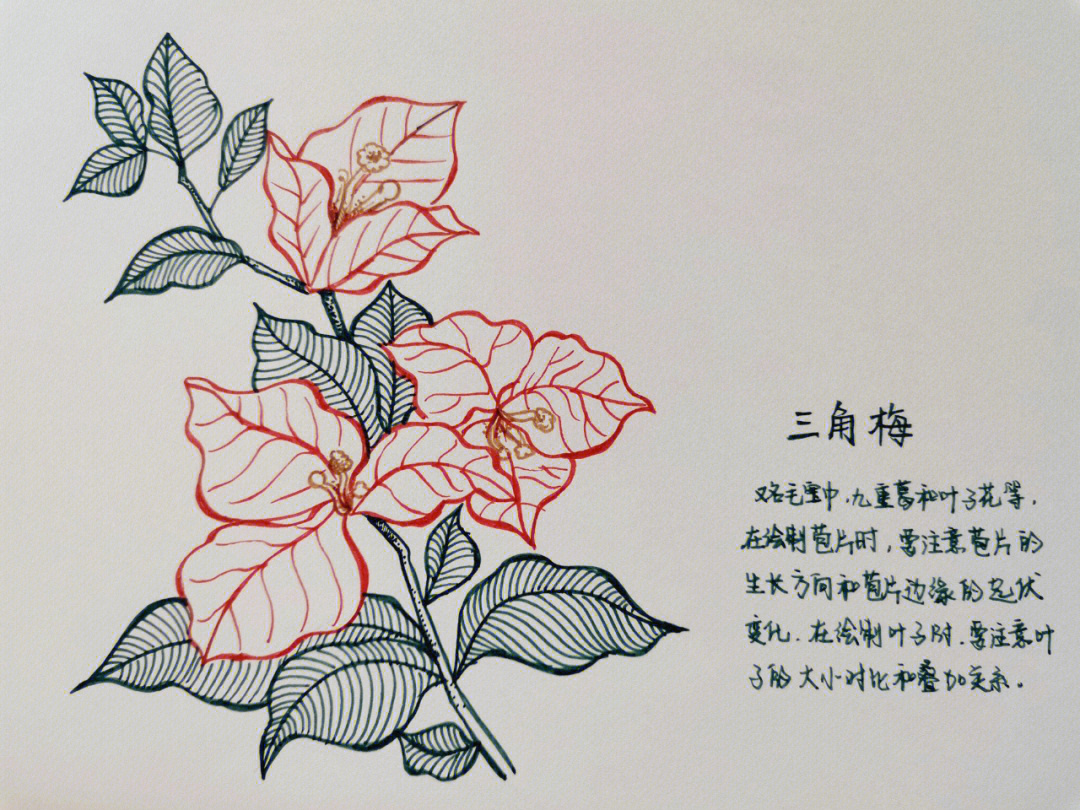 三角梅
又名毛里中,九重葛和叶子花等.
在绘制苞片时,要注意苞片的
生长方向和苞片边缘的起伏
变化.在绘制叶子时.要注意叶
子的大小对比和叠加关系.